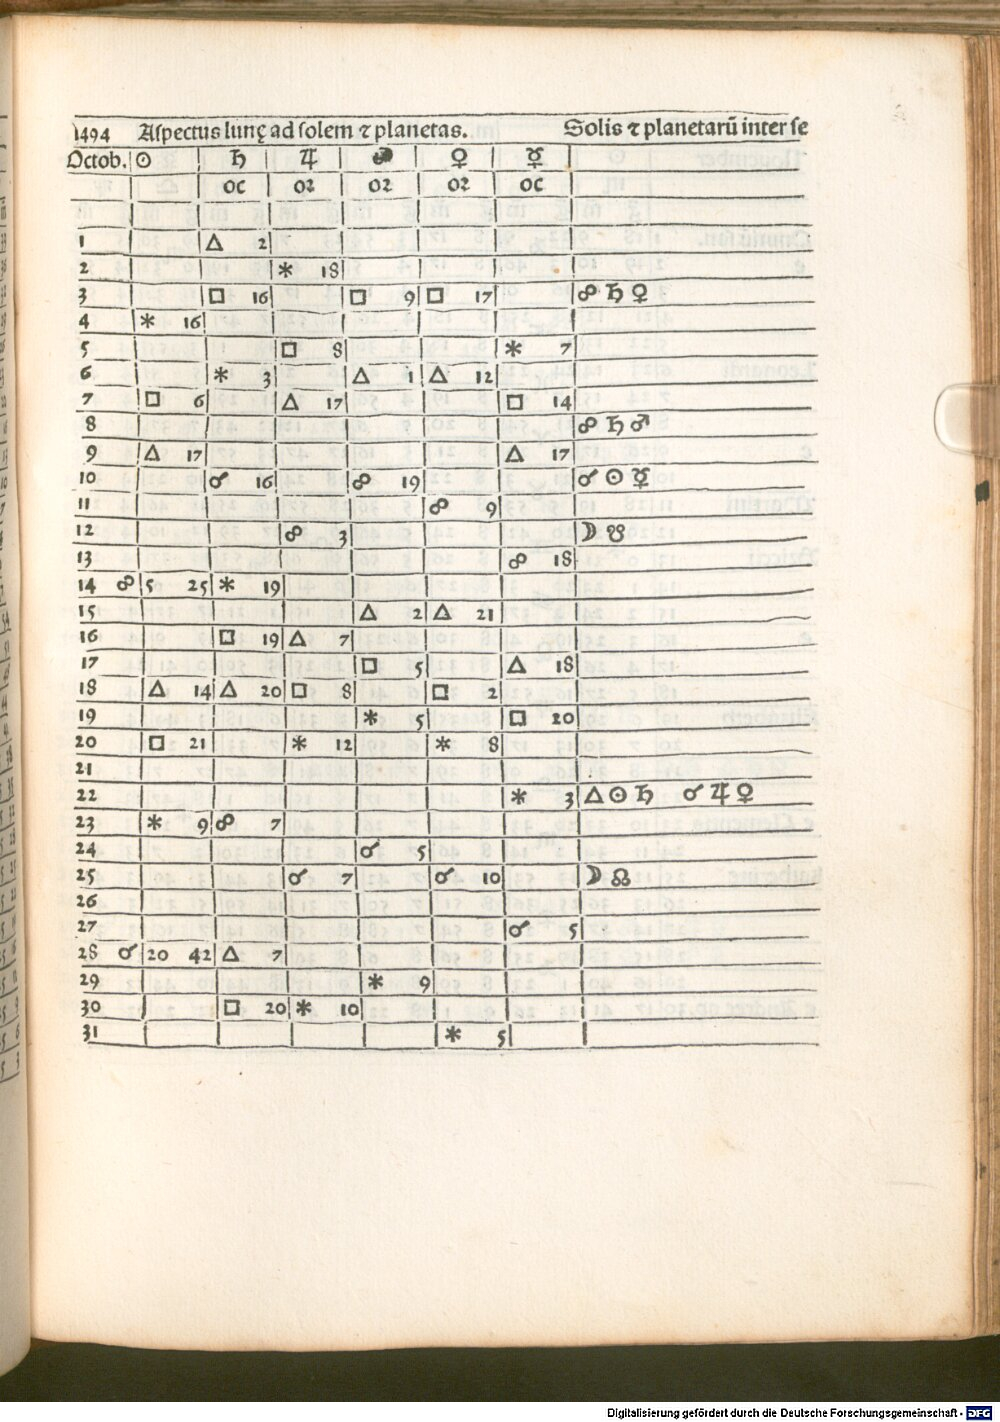 1494 Aſpectus lunę ad ſolem ⁊ planetas. Solis ⁊ planetarū inter ſe
Octob. ☉ ♄ ♃ ♂ ♀ ☿
oc oꝛ oꝛ oꝛ oc
1 △ 2
2 ⚹ 18
3 □ 16 □ 9 □ 17 ☍ ♄ ♀
4 ⚹ 16
5 □ 8 ⚹ 7
6 ⚹ 3 △ 1 △ 12
7 □ 6 △ 17 □ 14
8 ☍ ♄ ♂
9 △ 17 △ 17
10 ☌ 16 ☍ 19 ☌ ☉ ☿
11 ☍ 9
12 ☍ 3 ☽ ☋
13 ☍ 18
14 ☍ 5 25 ⚹ 19
15 △ 2 △ 21
16 □ 19 △ 7
17 □ 5 △ 18
18 △ 14 △ 20 □ 8 □ 2
19 ⚹ 5 □ 20
20 □ 21 ⚹ 12 ⚹ 8
21
22 ⚹ 3 △ ☉ ♄ ☌ ♃ ♀
23 ⚹ 9 ☍ 7
24 ☌ 5
25 ☌ 7 ☌ 10 ☽ ☊
26
27 ☌ 5
28 ☌ 20 42 △ 7
29 ⚹ 9
30 □ 20 ⚹ 10
31 ⚹ 5
Digitalisierung gefördert durch die Deutsche Forschungsgemeinschaft - DFG